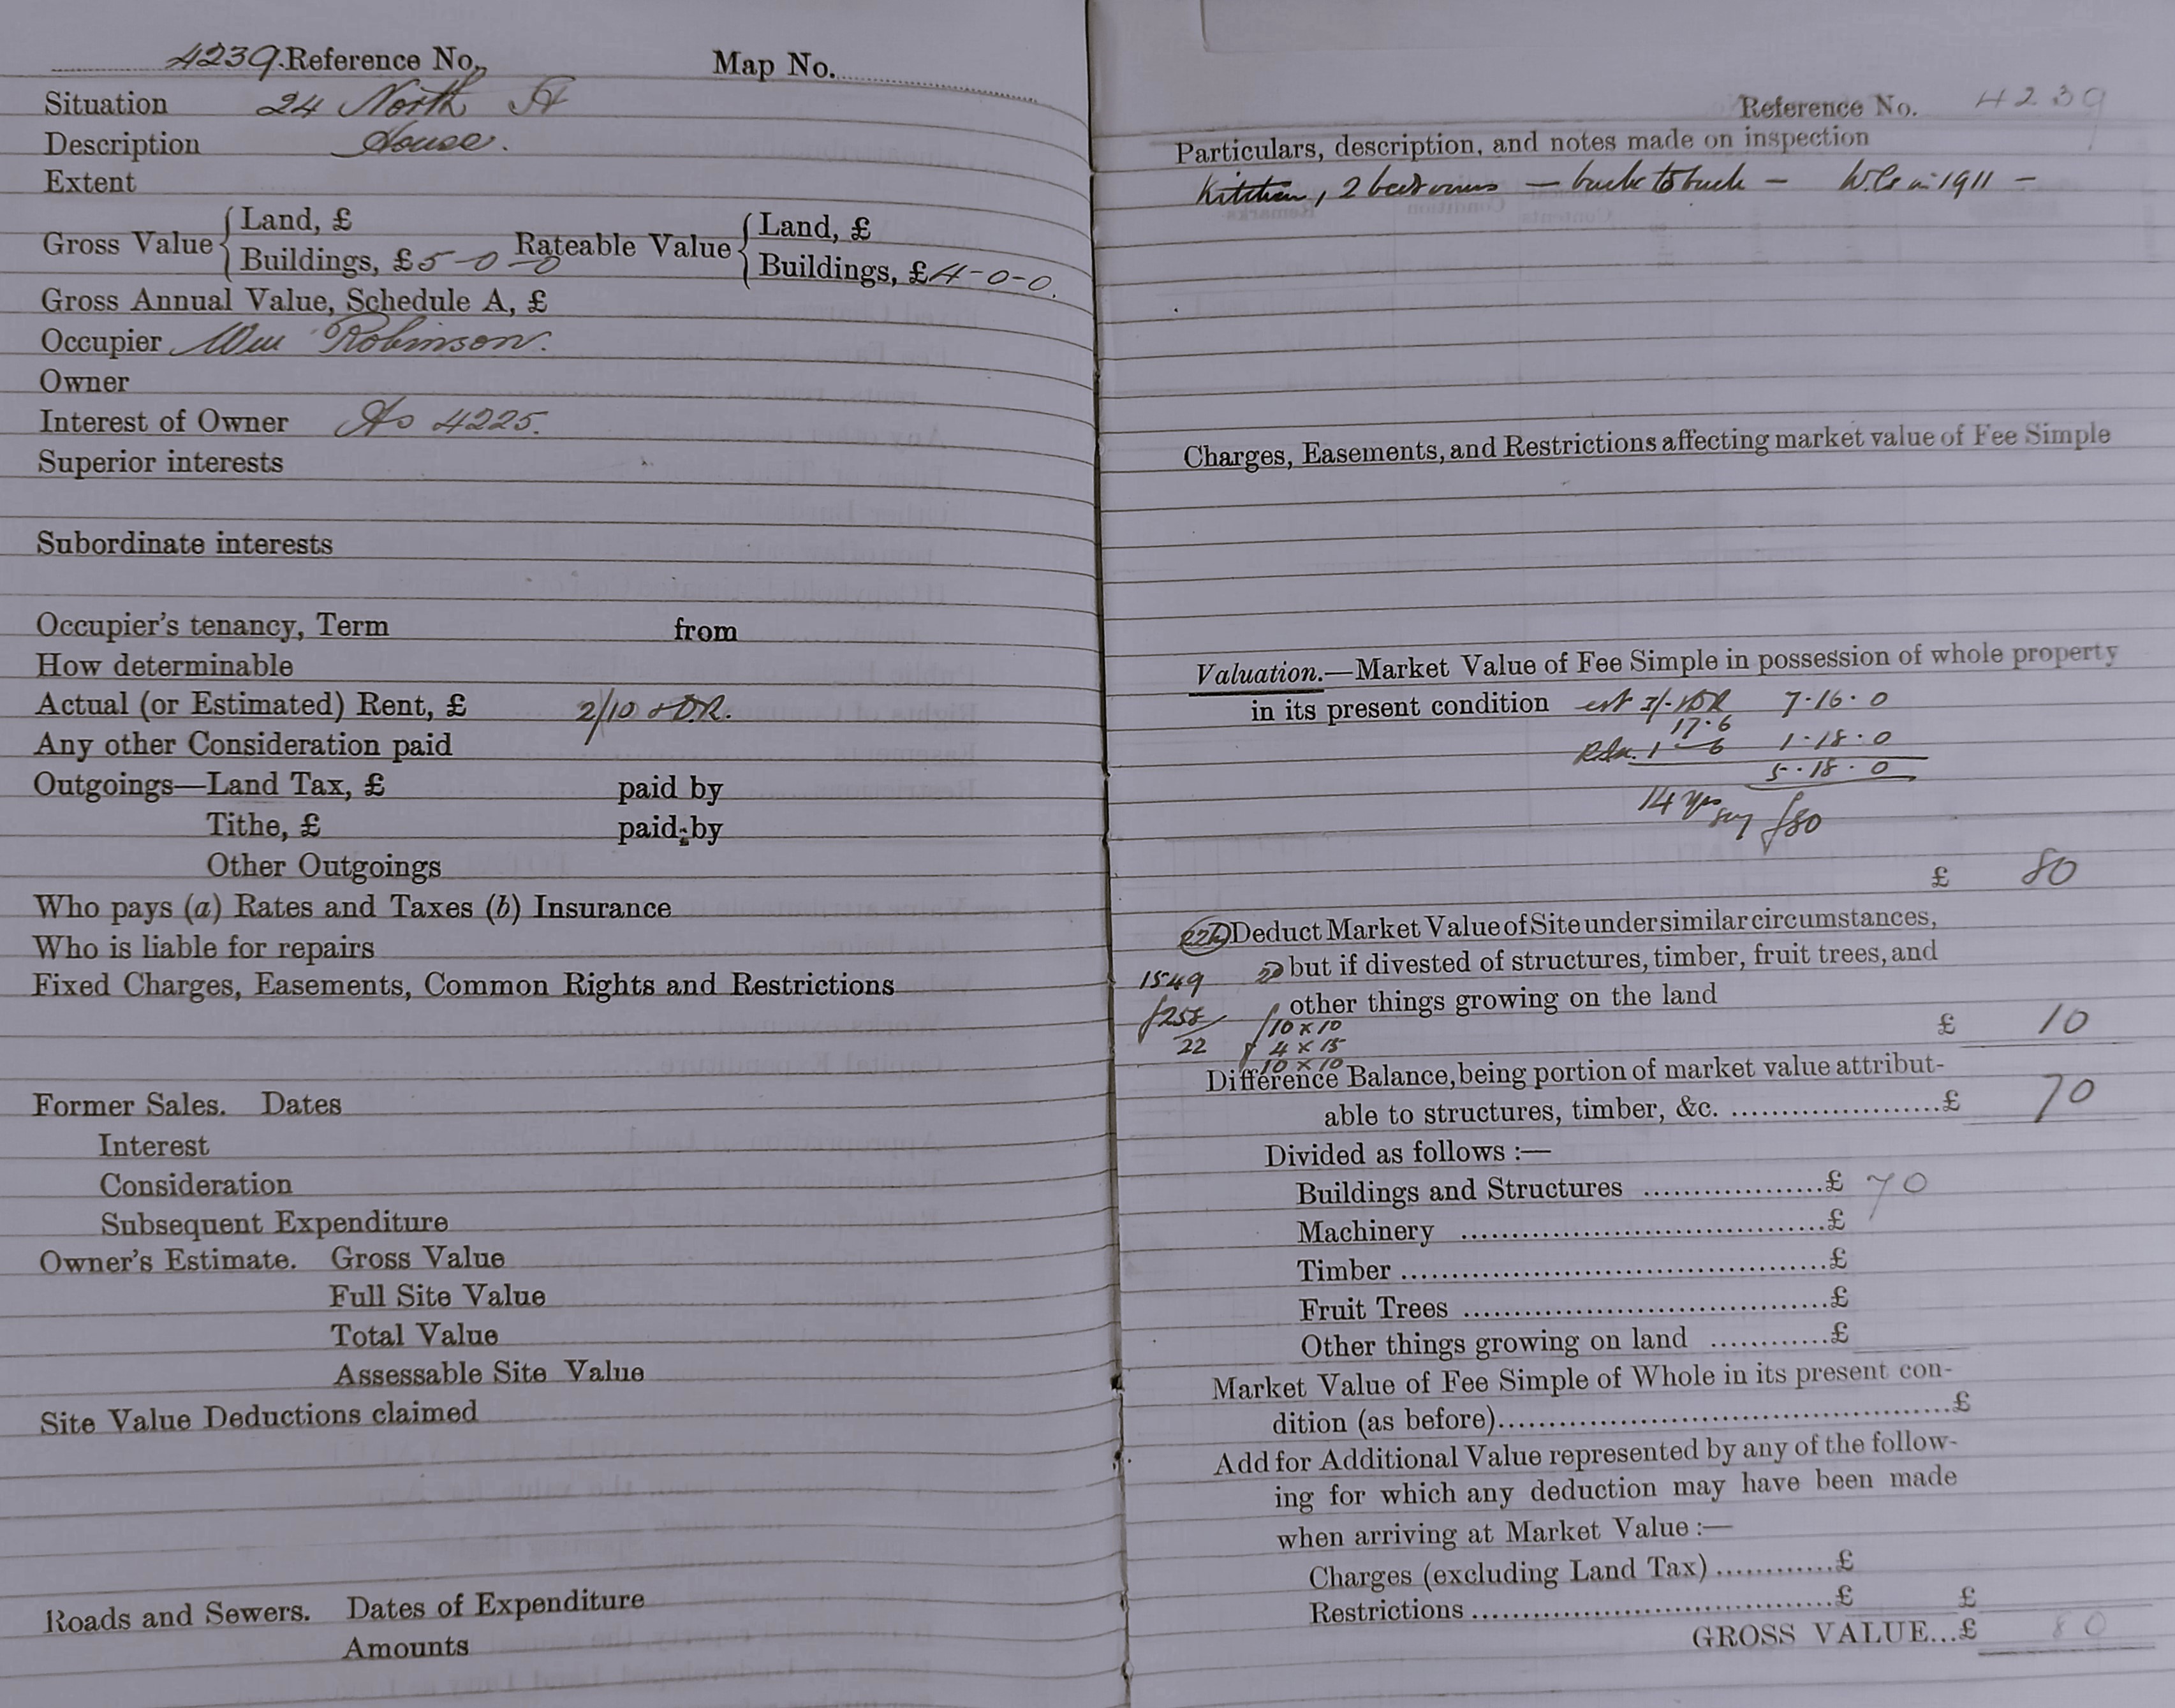 4239. Reference No. Map No.
Situation 24 North St
Description House.
Extent
Gross Value { Land, £ Rateable Value { Land, £
Buildings, £5-0-0 Buildings, £4-0-0.
Gross Annual Value, Schedule A, £
Occupier Wm Robinson.
Owner
Interest of Owner As 4225.
Superior interests
Subordinate interests
Occupier's tenancy, Term from
How determinable
Actual (or Estimated) Rent, £ 2/10 & D.R.
Any other Consideration paid
Outgoings—Land Tax, £ paid by
Tithe, £ paid by
Other Outgoings
Who pays (a) Rates and Taxes (b) Insurance
Who is liable for repairs
Fixed Charges, Easements, Common Rights and Restrictions
Former Sales. Dates
Interest
Consideration
Subsequent Expenditure
Owner's Estimate. Gross Value
Full Site Value
Total Value
Assessable Site Value
Site Value Deductions claimed
Roads and Sewers. Dates of Expenditure
Amounts
Reference No. 4239
Particulars, description, and notes made on inspection
Kitchen, 2 bedrooms — back to back — W.C. in 1911 —
Charges, Easements, and Restrictions affecting market value of Fee Simple
Valuation.—Market Value of Fee Simple in possession of whole property
in its present condition est 3/- DR 7.16.0
17.6
1 - 6 1.18.0
5.18.0
14 yrs say £80
£ 80
Deduct Market Value of Site under similar circumstances,
but if divested of structures, timber, fruit trees, and
1549
other things growing on the land
£258 10 x 10
22 4 x 15
10 x 10
£ 10
Difference Balance, being portion of market value attribut-
able to structures, timber, &c. ........ £ 70
Divided as follows :—
Buildings and Structures ........ £ 70
Machinery ........ £
Timber ........ £
Fruit Trees ........ £
Other things growing on land ........ £
Market Value of Fee Simple of Whole in its present con-
dition (as before) ........ £
Add for Additional Value represented by any of the follow-
ing for which any deduction may have been made
when arriving at Market Value :—
Charges (excluding Land Tax) ........ £
Restrictions ........ £ £
GROSS VALUE...£ 80